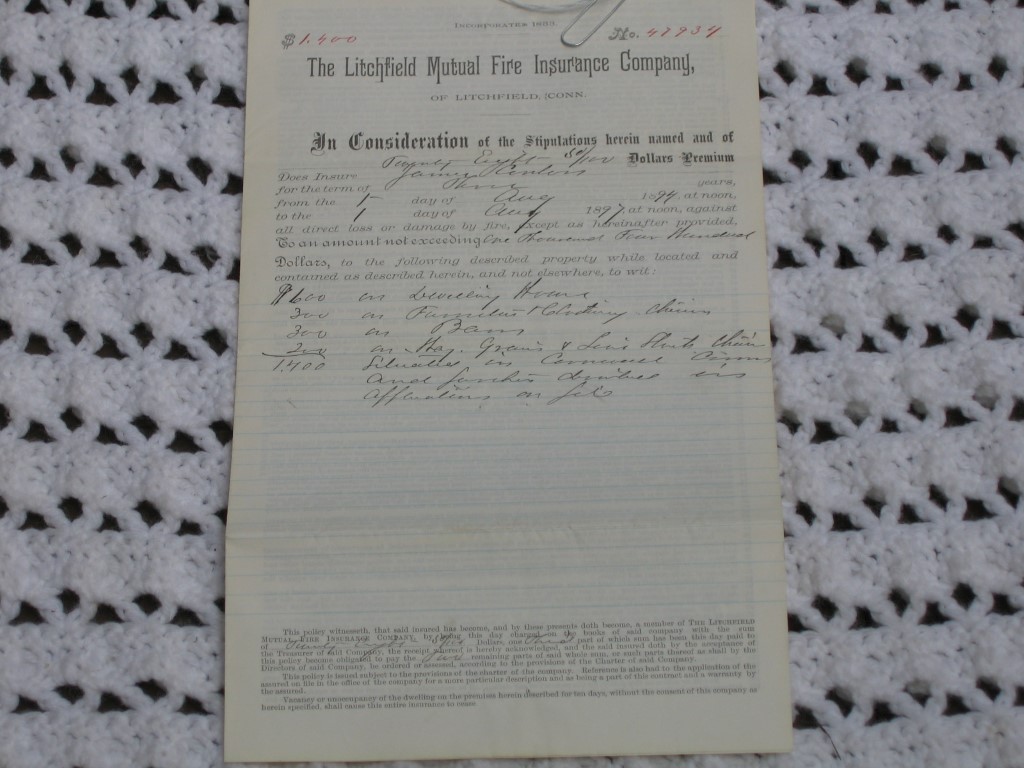 Incorporated 1833.
$1.400 No. 47934
The Litchfield Mutual Fire Insurance Company,
OF LITCHFIELD, CONN.
In Consideration of the Stipulations herein named and of
Twenty Eight Dollars Premium
Does Insure James
for the term of Three years,
from the 1 day of Aug 1894, at noon,
to the 1 day of Aug 1897, at noon, against
all direct loss or damage by fire, except as hereinafter provided,
To an amount not exceeding One Thousand Four Hundred
Dollars, to the following described property while located and
contained as described herein, and not elsewhere, to wit:
$600 on Dwelling House
300 on Furniture & Clothing therein
300 on Barn
200 on Hay, Grain & Live Stock therein
1.400 Situated in Cornwall Conn
and further described in
application on file
This policy witnesseth, that said insured has become, and by these presents doth become, a member of THE LITCHFIELD
MUTUAL FIRE INSURANCE COMPANY, by being this day charged on the books of said company with the sum
of Twenty Eight Dollars, one third part of which sum has been this day paid to
the Treasurer of said Company, the receipt whereof is hereby acknowledged, and the said insured doth by the acceptance of
this policy become obligated to pay the two remaining parts of said whole sum, or such parts thereof as shall by the
Directors of said Company, be ordered or assessed, according to the provisions of the Charter of said Company.
This policy is issued subject to the provisions of the charter of the company. Reference is also had to the application of the
assured on file in the office of the company for a more particular description and as being a part of this contract and a warranty by
the assured.
Vacancy or unoccupancy of the dwelling on the premises herein described for ten days, without the consent of this company or
herein specified, shall cause this entire insurance to cease.